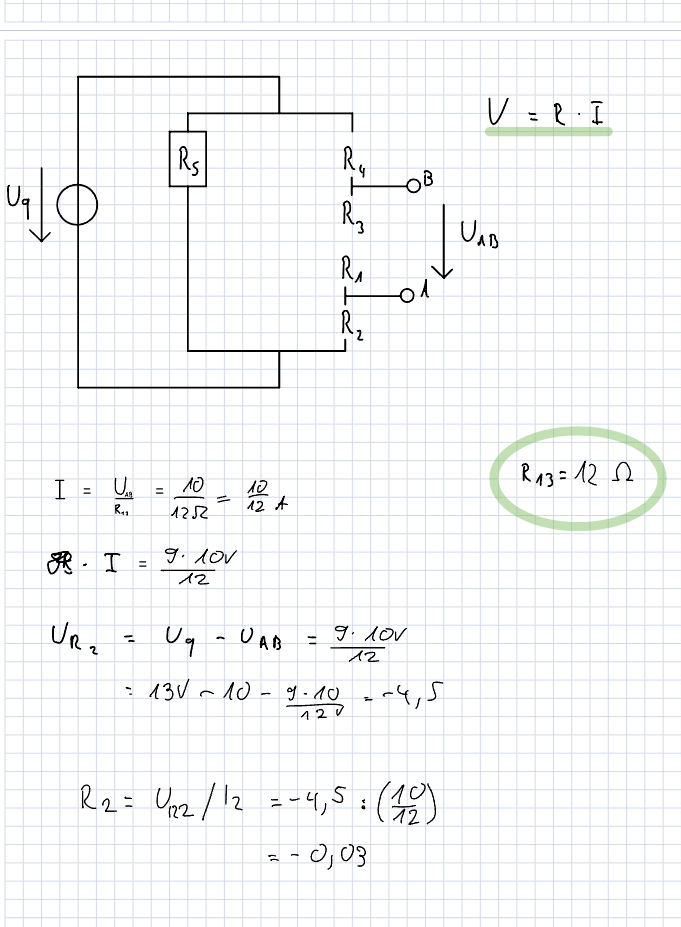 V = R · I
R5
R4
B
Uq
R3
UAB
R1
1
R2
R13 = 12 Ω
I = UAB/R13 = 10/12Ω = 10/12 A
· I = 9·10V/12
UR2 = Uq - UAB = 9·10V/12
= 13V - 10 - 9·10/12V = -4,5
R2 = UR2/I2 = -4,5 : (10/12)
= -0,03